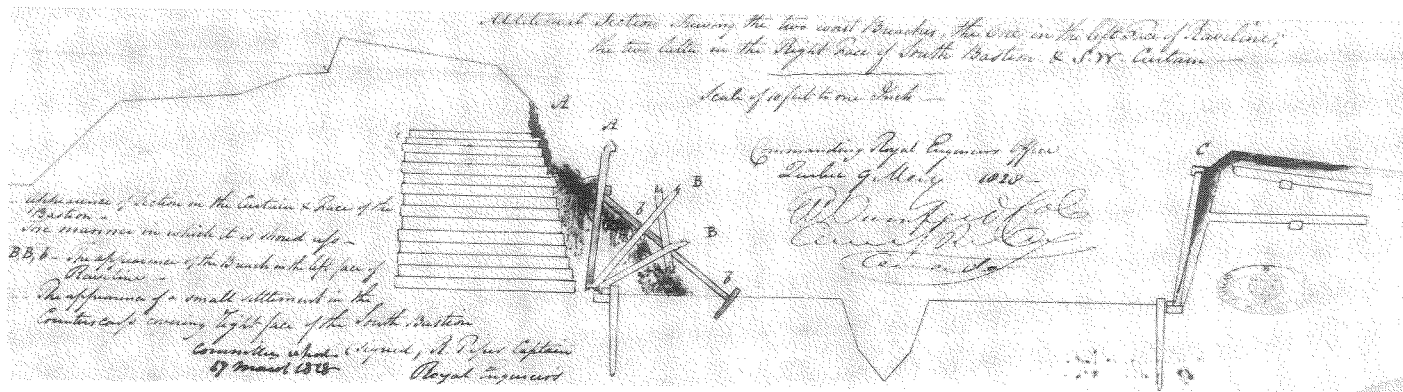 Additional Section shewing the two worst Breaches, the One in the left Face of Raveline,
the two latter in the Right Face of South Bastion & S.W. Curtain
Scale of 10 feet to one Inch
A
A
B
B
b
b
C
Commanding Royal Engineers Office
Quebec 9 May 1828
appearance of Section on the Curtain & Face of the
Bastion
The manner in which it is shored up
BB, b The appearance of the Breach in the left face of
Raveline
The appearance of a small settlement in the
Counterscarp covering right face of the South Bastion
(Signed) R. Piper Captain
Royal Engineers
1828